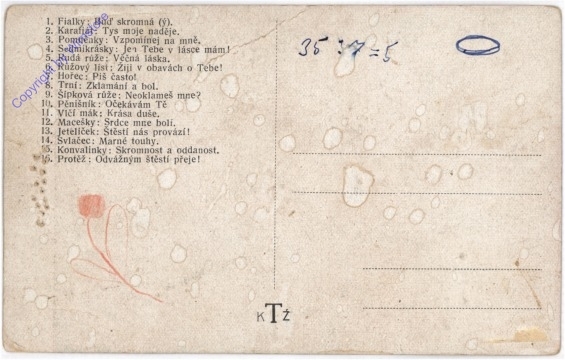 1. Fialky: Buď skromná (ý).
2. Karafiát: Tys moje naděje.
3. Pomněnky: Vzpomínej na mně.
4. Sedmikrásky: Jen Tebe v lásce mám!
5. Rudá růže: Věčná láska.
6. Růžový list: Žiji v obavách o Tebe!
7. Hořec: Piš často!
8. Trní: Zklamání a bol.
9. Šípková růže: Neoklameš mne?
10. Pěnišník: Očekávám Tě
11. Vlčí mák: Krása duše.
12. Macešky: Srdce mne bolí.
13. Jetelíček: Štěstí nás provází!
14. Svlačec: Marné touhy.
15. Konvalinky: Skromnost a oddanost.
16. Protěž: Odvážným štěstí přeje!
35 : 7 = 5
KTŽ
Copyright by